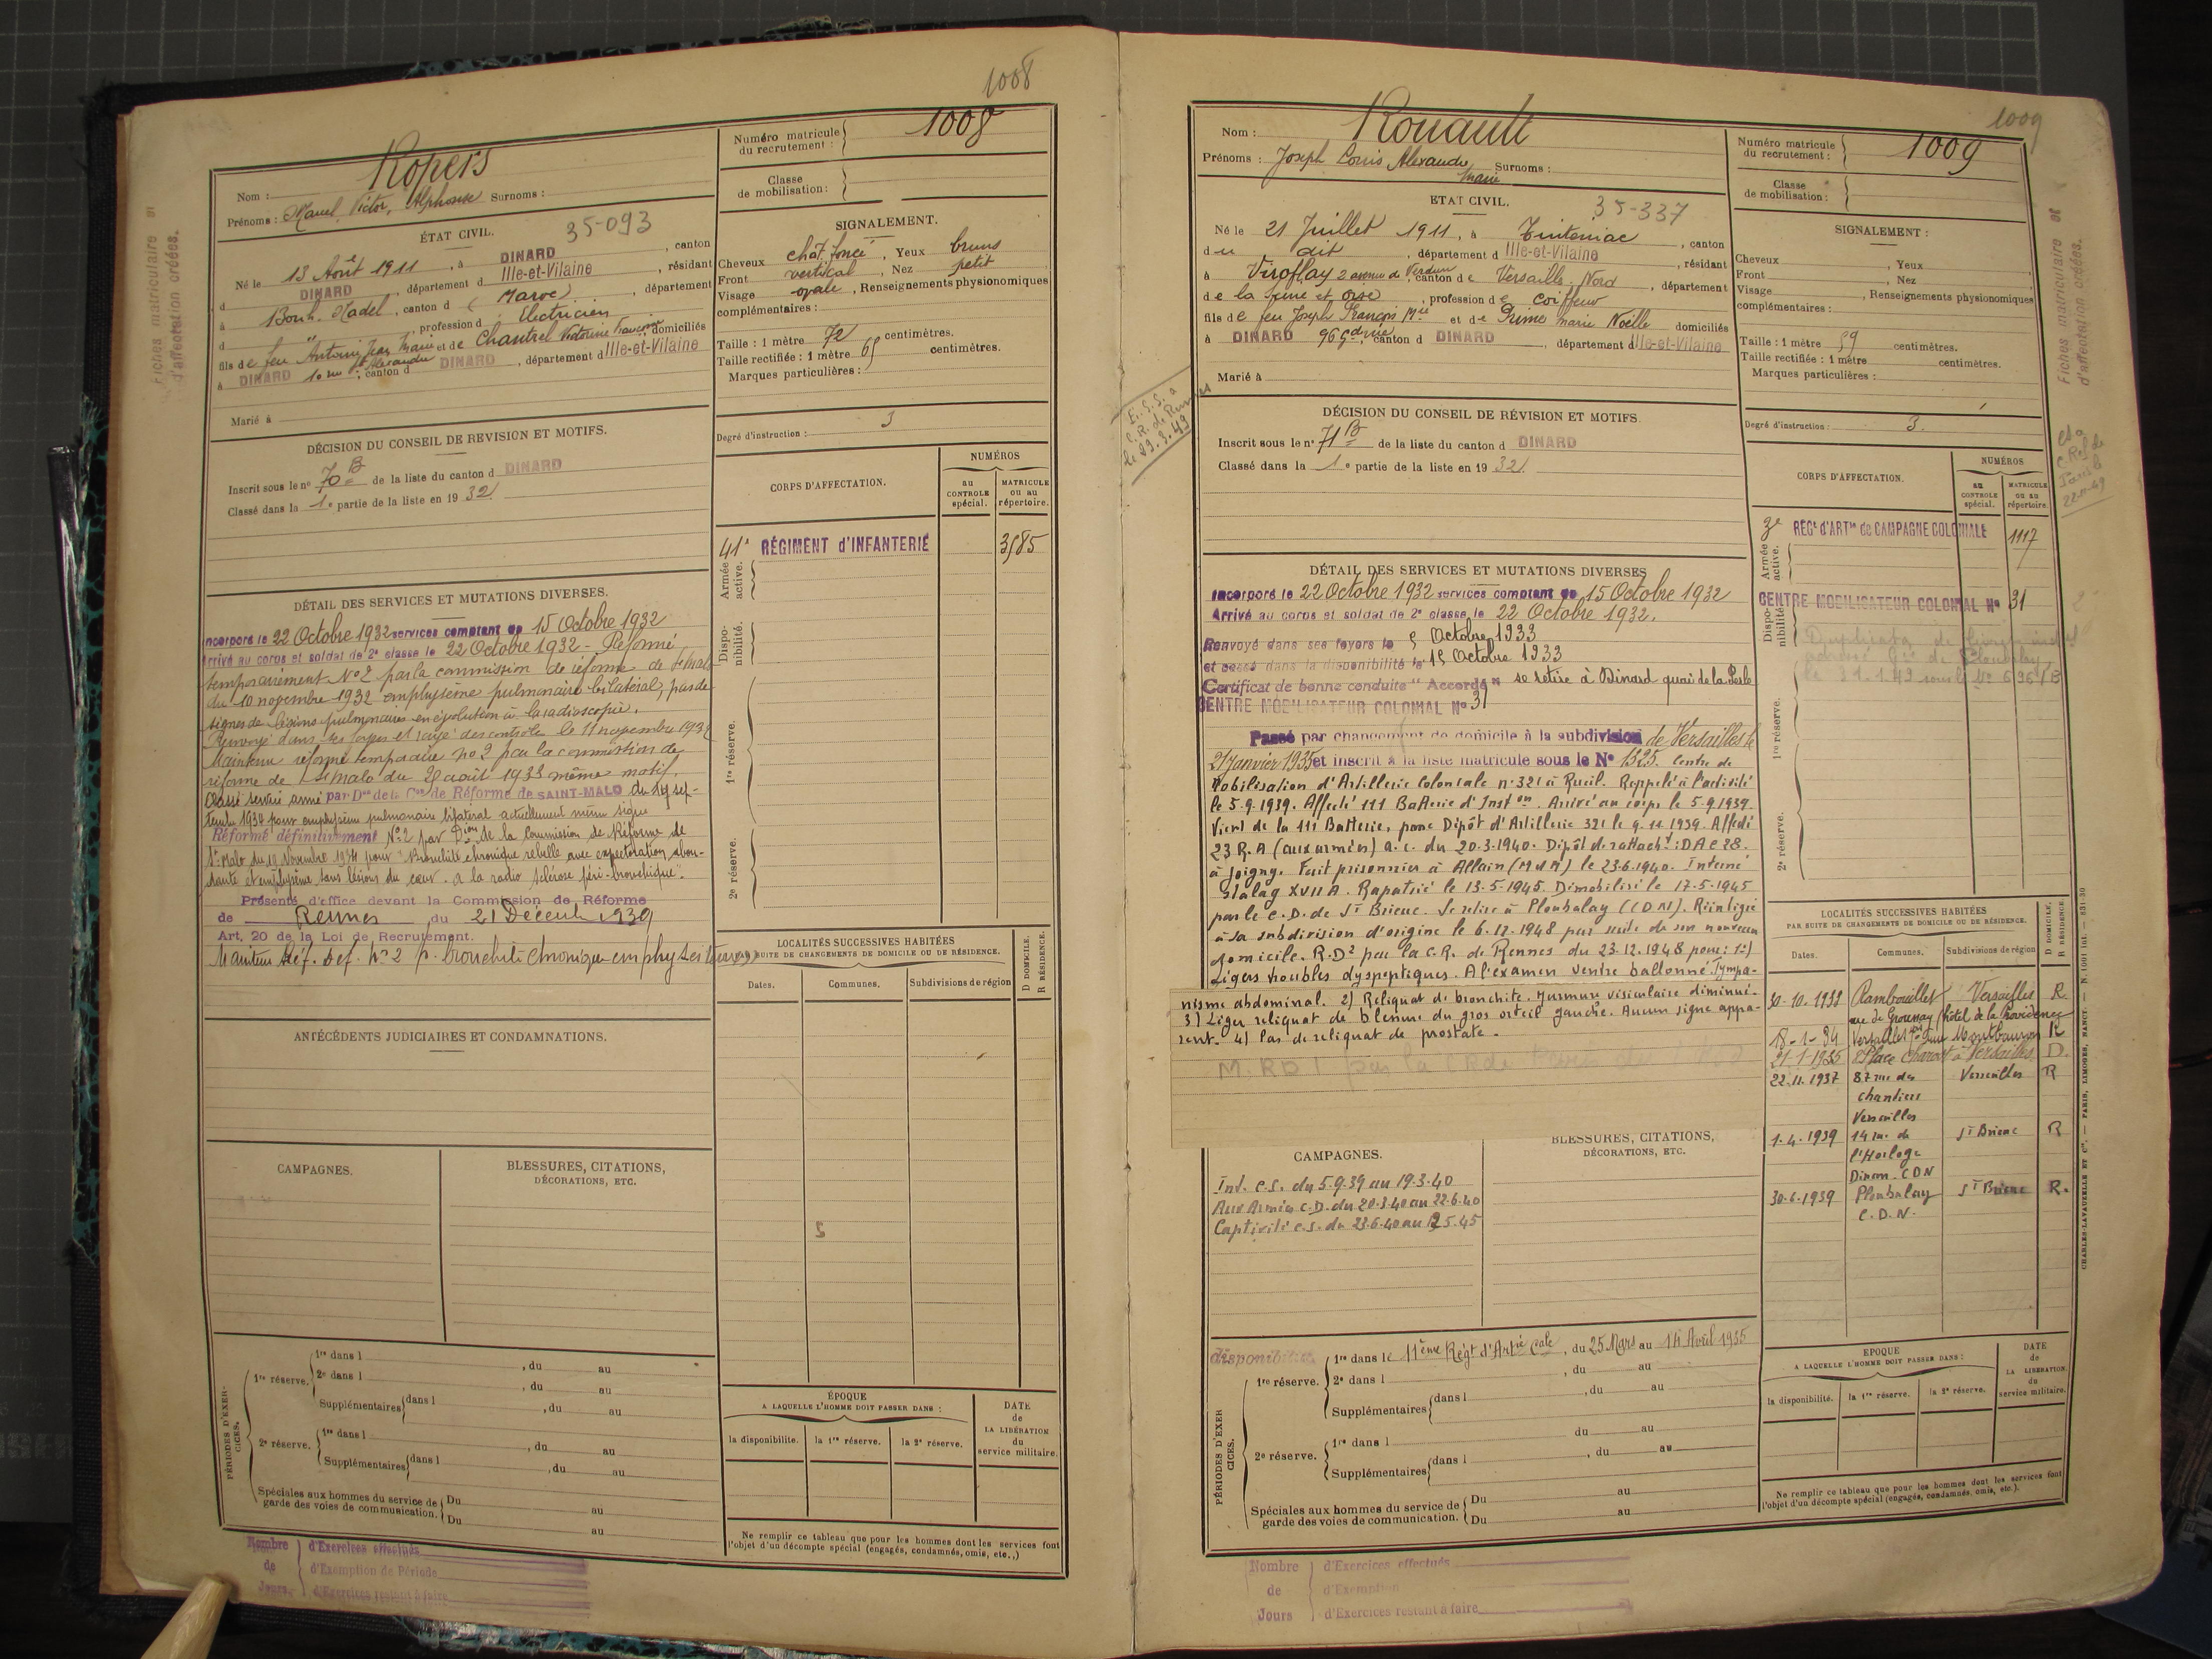 1008
Ropers
Nom :
Prénoms : Marcel Victor, Alphonse Surnoms :
Numéro matricule du recrutement : 1008
Classe de mobilisation :
ÉTAT CIVIL.
35-093
Né le 13 Août 1911, à DINARD, canton
d DINARD, département d Ille-et-Vilaine, résidant
à Bouh. Kadel, canton d (Maroc), département
d " , profession d électricien
fils de feu Antoine Jean Marie et de Chantrel Victorine domiciliés
à DINARD 10 rue Alexandre canton d DINARD, département d Ille-et-Vilaine
Marié à
SIGNALEMENT.
Cheveux chat. foncé, Yeux bruns
Front vertical, Nez petit
Visage ovale, Renseignements physionomiques
complémentaires :
Taille : 1 mètre 72 centimètres.
Taille rectifiée : 1 mètre centimètres.
Marques particulières :
Degré d'instruction : 3
DÉCISION DU CONSEIL DE REVISION ET MOTIFS.
Inscrit sous le nº 70 B de la liste du canton d DINARD
Classé dans la 1e partie de la liste en 1932
CORPS D'AFFECTATION.
NUMÉROS
au CONTROLE spécial.
MATRICULE ou au répertoire.
Armée active.
41e RÉGIMENT d'INFANTERIE 3585
Disponibilité.
1re réserve.
2e réserve.
DÉTAIL DES SERVICES ET MUTATIONS DIVERSES.
Incorporé le 22 Octobre 1932 services comptant du 15 Octobre 1932
Arrivé au corps et soldat de 2e classe le 22 Octobre 1932 - Réformé
temporairement Nº2 par la commission de réforme de St Malo
du 10 novembre 1932 emphysème pulmonaire bilatéral, pas de
signes de lésions pulmonaires en évolution à la radioscopie.
Renvoyé dans ses foyers et rayé des contrôles le 11 novembre 1932
Maintenu réformé temporaire no 2 par la commission de
réforme de St malo du août 1933 même motif.
Classé service armé par Don de la Con de Réforme de SAINT-MALO du sep-
tembre 1934 pour emphysème pulmonaire bilatéral actuellement même signe
Réformé définitivement Nº2 par Dion de la Commission de Réforme de
St Malo du 19 Novembre 1934 pour "Bronchite chronique rebelle avec expectoration abon-
dante et emphysème sans lésions du cœur. a la radio sclérose péri-bronchique".
Présenté d'office devant la Commission de Réforme
de Rennes du 21 Décemb 1939
Art. 20 de la Loi de Recrutement.
Maintenu Réf. Def. Nº 2 p. bronchite chronique emphyséme
ANTÉCÉDENTS JUDICIAIRES ET CONDAMNATIONS.
CAMPAGNES.
BLESSURES, CITATIONS, DÉCORATIONS, ETC.
LOCALITÉS SUCCESSIVES HABITÉES
PAR SUITE DE CHANGEMENTS DE DOMICILE OU DE RÉSIDENCE.
Dates.
Communes.
Subdivisions de région
D DOMICILE. R RÉSIDENCE.
PÉRIODES D'EXERCICES.
1re réserve. 1re dans l , du au
2e dans l , du au
Supplémentaires dans l , du au
2e réserve. 1re dans l , du au
Supplémentaires dans l , du au
Spéciales aux hommes du service de garde des voies de communication. Du au
Du au
ÉPOQUE
A LAQUELLE L'HOMME DOIT PASSER DANS :
la disponibilité.
la 1re réserve.
la 2e réserve.
DATE de LA LIBÉRATION du service militaire.
Ne remplir ce tableau que pour les hommes dont les services font
l'objet d'un décompte spécial (engagés, condamnés, omis, etc.,)
Nombre de Jours
d'Exercices effectués
d'Exemption de Période
d'Exercices restant à faire
Fiches matriculaire et
d'affectation créées.
1009
Nom : Rouault
Prénoms : Joseph Louis Alexandre Marie Surnoms :
Numéro matricule du recrutement : 1009
Classe de mobilisation :
ÉTAT CIVIL.
35-337
Né le 21 Juillet 1911, à Tinténiac, canton
du dit, département d Ille-et-Vilaine, résidant
à Viroflay 2 avenue de Verdun, canton de Versailles-Nord, département
de la Seine et Oise, profession de coiffeur
fils de feu Joseph François Mie et de Prime Marie Noëlle domiciliés
à DINARD 96 gde rue canton d DINARD, département d Ille-et-Vilaine
Marié à
SIGNALEMENT :
Cheveux , Yeux
Front , Nez
Visage , Renseignements physionomiques
complémentaires :
Taille : 1 mètre 59 centimètres.
Taille rectifiée : 1 mètre centimètres.
Marques particulières :
Degré d'instruction : 3.
DÉCISION DU CONSEIL DE RÉVISION ET MOTIFS.
Inscrit sous le nº 71 B de la liste du canton d DINARD
Classé dans la 1e partie de la liste en 1932
CORPS D'AFFECTATION.
NUMÉROS
au CONTROLE spécial.
MATRICULE ou au répertoire.
Armée active.
3e RÉGt d'ARTie de CAMPAGNE COLONIALE 1117
Disponibilité.
CENTRE MOBILISATEUR COLONIAL Nº 31
1re réserve.
2e réserve.
DÉTAIL DES SERVICES ET MUTATIONS DIVERSES
Incorporé le 22 Octobre 1932 services comptant du 15 Octobre 1932
Arrivé au corps et soldat de 2e classe le 22 Octobre 1932.
Renvoyé dans ses foyers le 5 Octobre 1933
et passé dans la disponibilité le 15 Octobre 1933
Certificat de bonne conduite "Accordé" se retire à Dinard quai de la Perle
CENTRE MOBILISATEUR COLONIAL Nº 31
Passé par changement de domicile à la subdivision de Versailles le
21 janvier 1935 et inscrit à la liste matricule sous le Nº 1325. Centre de
Mobilisation d'Artillerie Coloniale nº 321 à Rueil. Rappelé à l'activité
le 5.9.1939. Affecté 111 Batterie d'Inston. Arrivé au corps le 5.9.1939.
Vient de la 111 Batterie, passe Dépôt d'Artillerie 321 le 9.11.1939. Affecté
23 R.A (aux armées) a.c. du 20.3.1940. Dépôt de rattacht : DAC 28.
à Joigny. Fait prisonnier à Allain (M&M) le 23.6.1940. Interné
Stalag XVII A. Rapatrié le 13.5.1945. Démobilisé le 17.5.1945
par le C.D. de St Brieuc. Se retire à Ploubalay (CDN). Réintégré
à sa subdivision d'origine le 6.12.1948 par suite de son nouveau
domicile. R.D2 par la C.R. de Rennes du 23.12.1948 pour: 1)
Légers troubles dyspeptiques. A l'examen ventre ballonné. Tympa-
nisme abdominal. 2) Reliquat de bronchite. Murmure vésiculaire diminué.
3) Léger reliquat de blessure du gros orteil gauche. Aucun signe appa-
rent. 4) Pas de reliquat de prostate.
CAMPAGNES.
Int. C.S. du 5.9.39 au 19.3.40
Aux Armées C.D. du 20.3.40 au 22.6.40
Captivité C.S. du 23.6.40 au 12.5.45
BLESSURES, CITATIONS, DÉCORATIONS, ETC.
LOCALITÉS SUCCESSIVES HABITÉES
PAR SUITE DE CHANGEMENTS DE DOMICILE OU DE RÉSIDENCE.
Dates.
Communes.
Subdivisions de région
D DOMICILE. R RÉSIDENCE.
30-10.1933 Rambouillet Versailles R
rue de Groussay (hôtel de la Providence
18-1-34 Versailles rue Montbauron R
21-1-1935 Place Charost à Versailles D.
22.11.1937 87 rue des Versailles R
chantiers
Versailles
1.4.1939 14 r. de St Brieuc R
l'Horloge
Dinan. CDN
30.6.1939 Ploubalay St Brieuc R.
C.D.N.
PÉRIODES D'EXERCICES.
disponibilité
1re dans le 11ème Régt d'Artie Cale, du 25 Mars au 14 Avril 1935
1re réserve. 2e dans l , du au
Supplémentaires dans l , du au
2e réserve. 1re dans l du au
Supplémentaires dans l , du au
Spéciales aux hommes du service de garde des voies de communication. Du au
Du au
EPOQUE
A LAQUELLE L'HOMME DOIT PASSER DANS :
la disponibilité.
la 1re réserve.
la 2e réserve.
DATE de LA LIBÉRATION du service militaire.
Ne remplir ce tableau que pour les hommes dont les services font
l'objet d'un décompte spécial (engagés, condamnés, omis, etc.).
Nombre de Jours
d'Exercices effectués
d'Exemption
d'Exercices restant à faire
Fiches matriculaire et
d'affectation créées.
CHARLES-LAVAUZELLE ET Cie. — PARIS, LIMOGES, NANCY